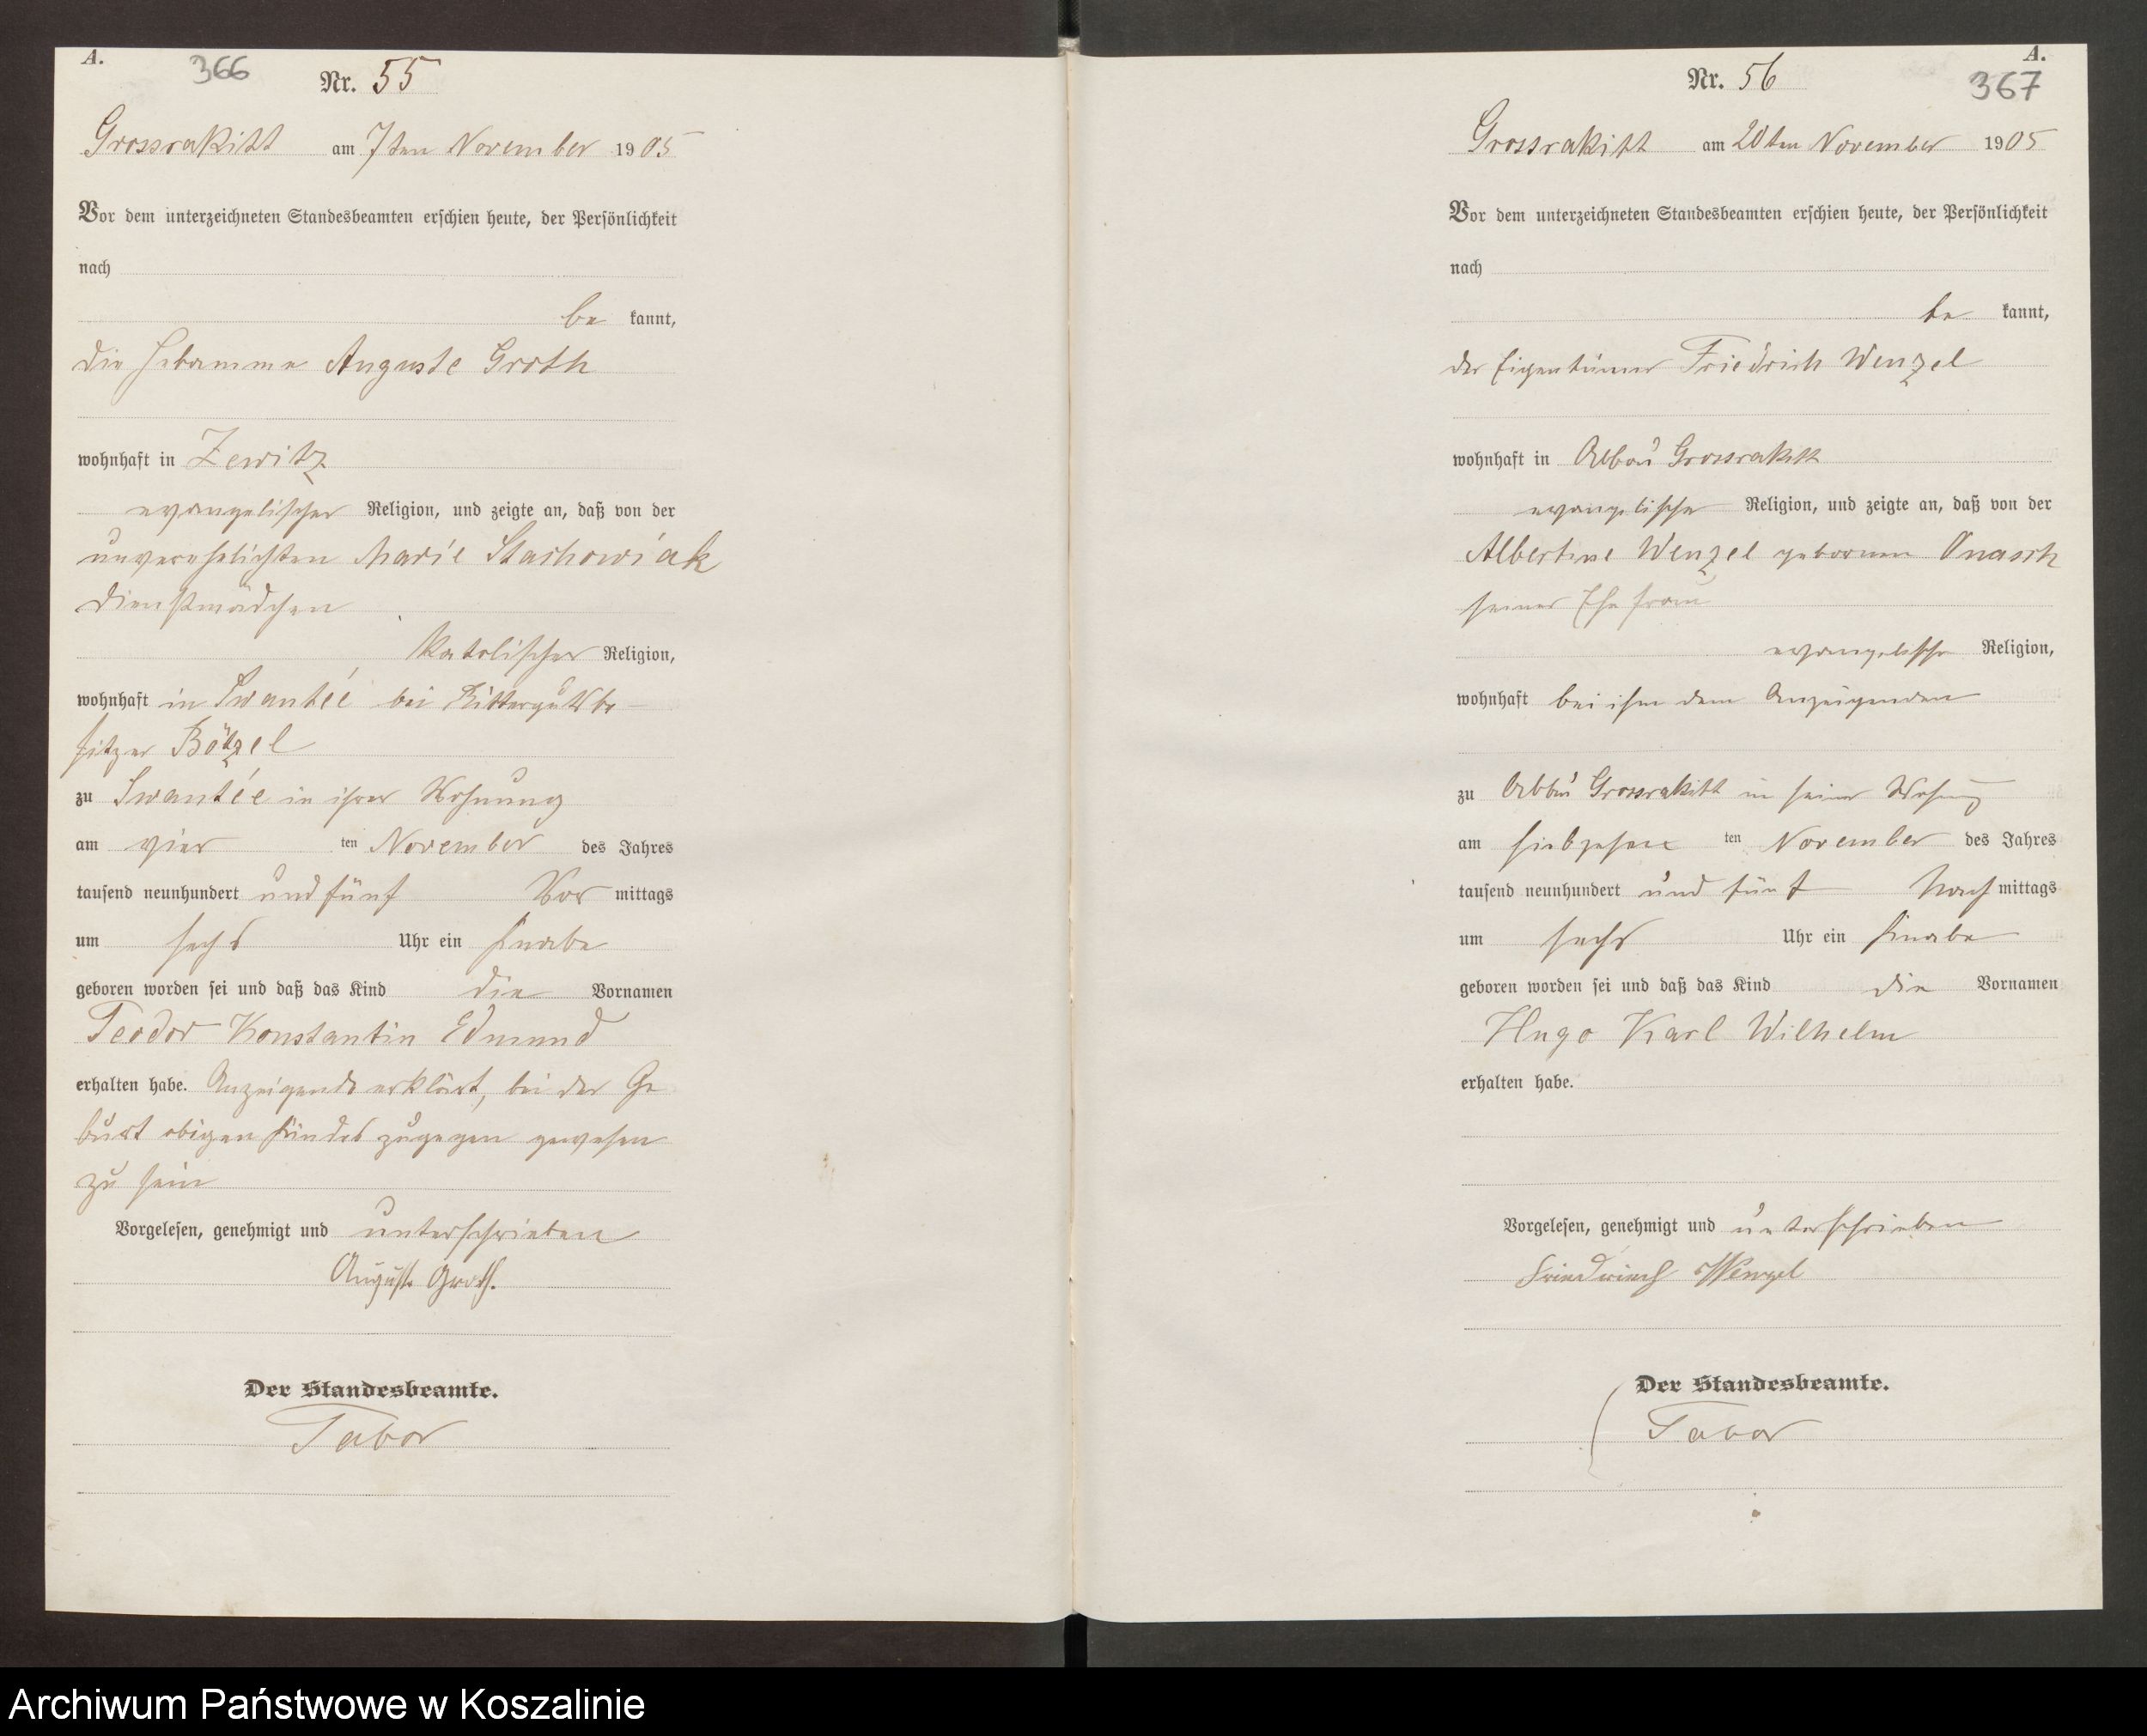 A.
366
Nr. 55
Grossrakitt am 7ten November 1905
Vor dem unterzeichneten Standesbeamten erschien heute, der Persönlichkeit
nach
be kannt,
die Hebamme Auguste Groth
wohnhaft in Zewitz
evangelischer Religion, und zeigte an, daß von der
unverehelichten Marie Stachowiak
Dienstmädchen
katolischer Religion,
wohnhaft in Swantéé bei Rittergutsbe
sitzer Bötzel
zu Swantée in ihrer Wohnung
am vier ten November des Jahres
tausend neunhundert und fünf Vor mittags
um sechs Uhr ein Knabe
geboren worden sei und daß das Kind die Vornamen
Teodor Konstantin Edmund
erhalten habe. Anzeigende erklärt, bei der Ge
burt obigen Kindes zugegen gewesen
zu sein
Vorgelesen, genehmigt und unterschrieben
Auguste Groth.
Der Standesbeamte.
Tabor
A.
367
Nr. 56
Grossrakitt am 20ten November 1905
Vor dem unterzeichneten Standesbeamten erschien heute, der Persönlichkeit
nach
be kannt,
der Eigentümer Friedrich Wenzel
wohnhaft in Abbau Grossrakitt
evangelischer Religion, und zeigte an, daß von der
Albertine Wenzel geborenen Onasch
seiner Ehefrau
evangelischer Religion,
wohnhaft bei ihm dem Anzeigenden
zu Abbau Grossrakitt in seiner Wohnung
am siebzehn ten November des Jahres
tausend neunhundert und fünf Nach mittags
um sechs Uhr ein Knabe
geboren worden sei und daß das Kind die Vornamen
Hugo Karl Wilhelm
erhalten habe.
Vorgelesen, genehmigt und unterschrieben
Friedrich Wenzel
Der Standesbeamte.
Tabor
Archiwum Państwowe w Koszalinie